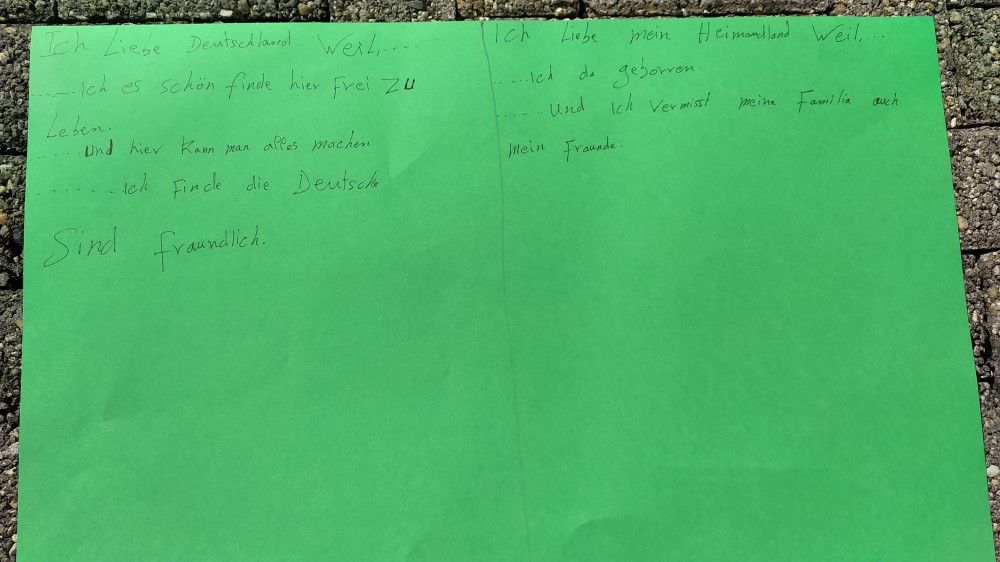 Ich Liebe Deutschland Weil.....
......Ich es schön finde hier Frei zu
Leben.
.....und hier kann man alles machen
........Ich Finde die Deutsche
Sind fraundlich.
Ich Liebe mein Heimandland Weil....
.....Ich da geborren
.....Und ich vermisst meine Familia auch
mein Fraunde.